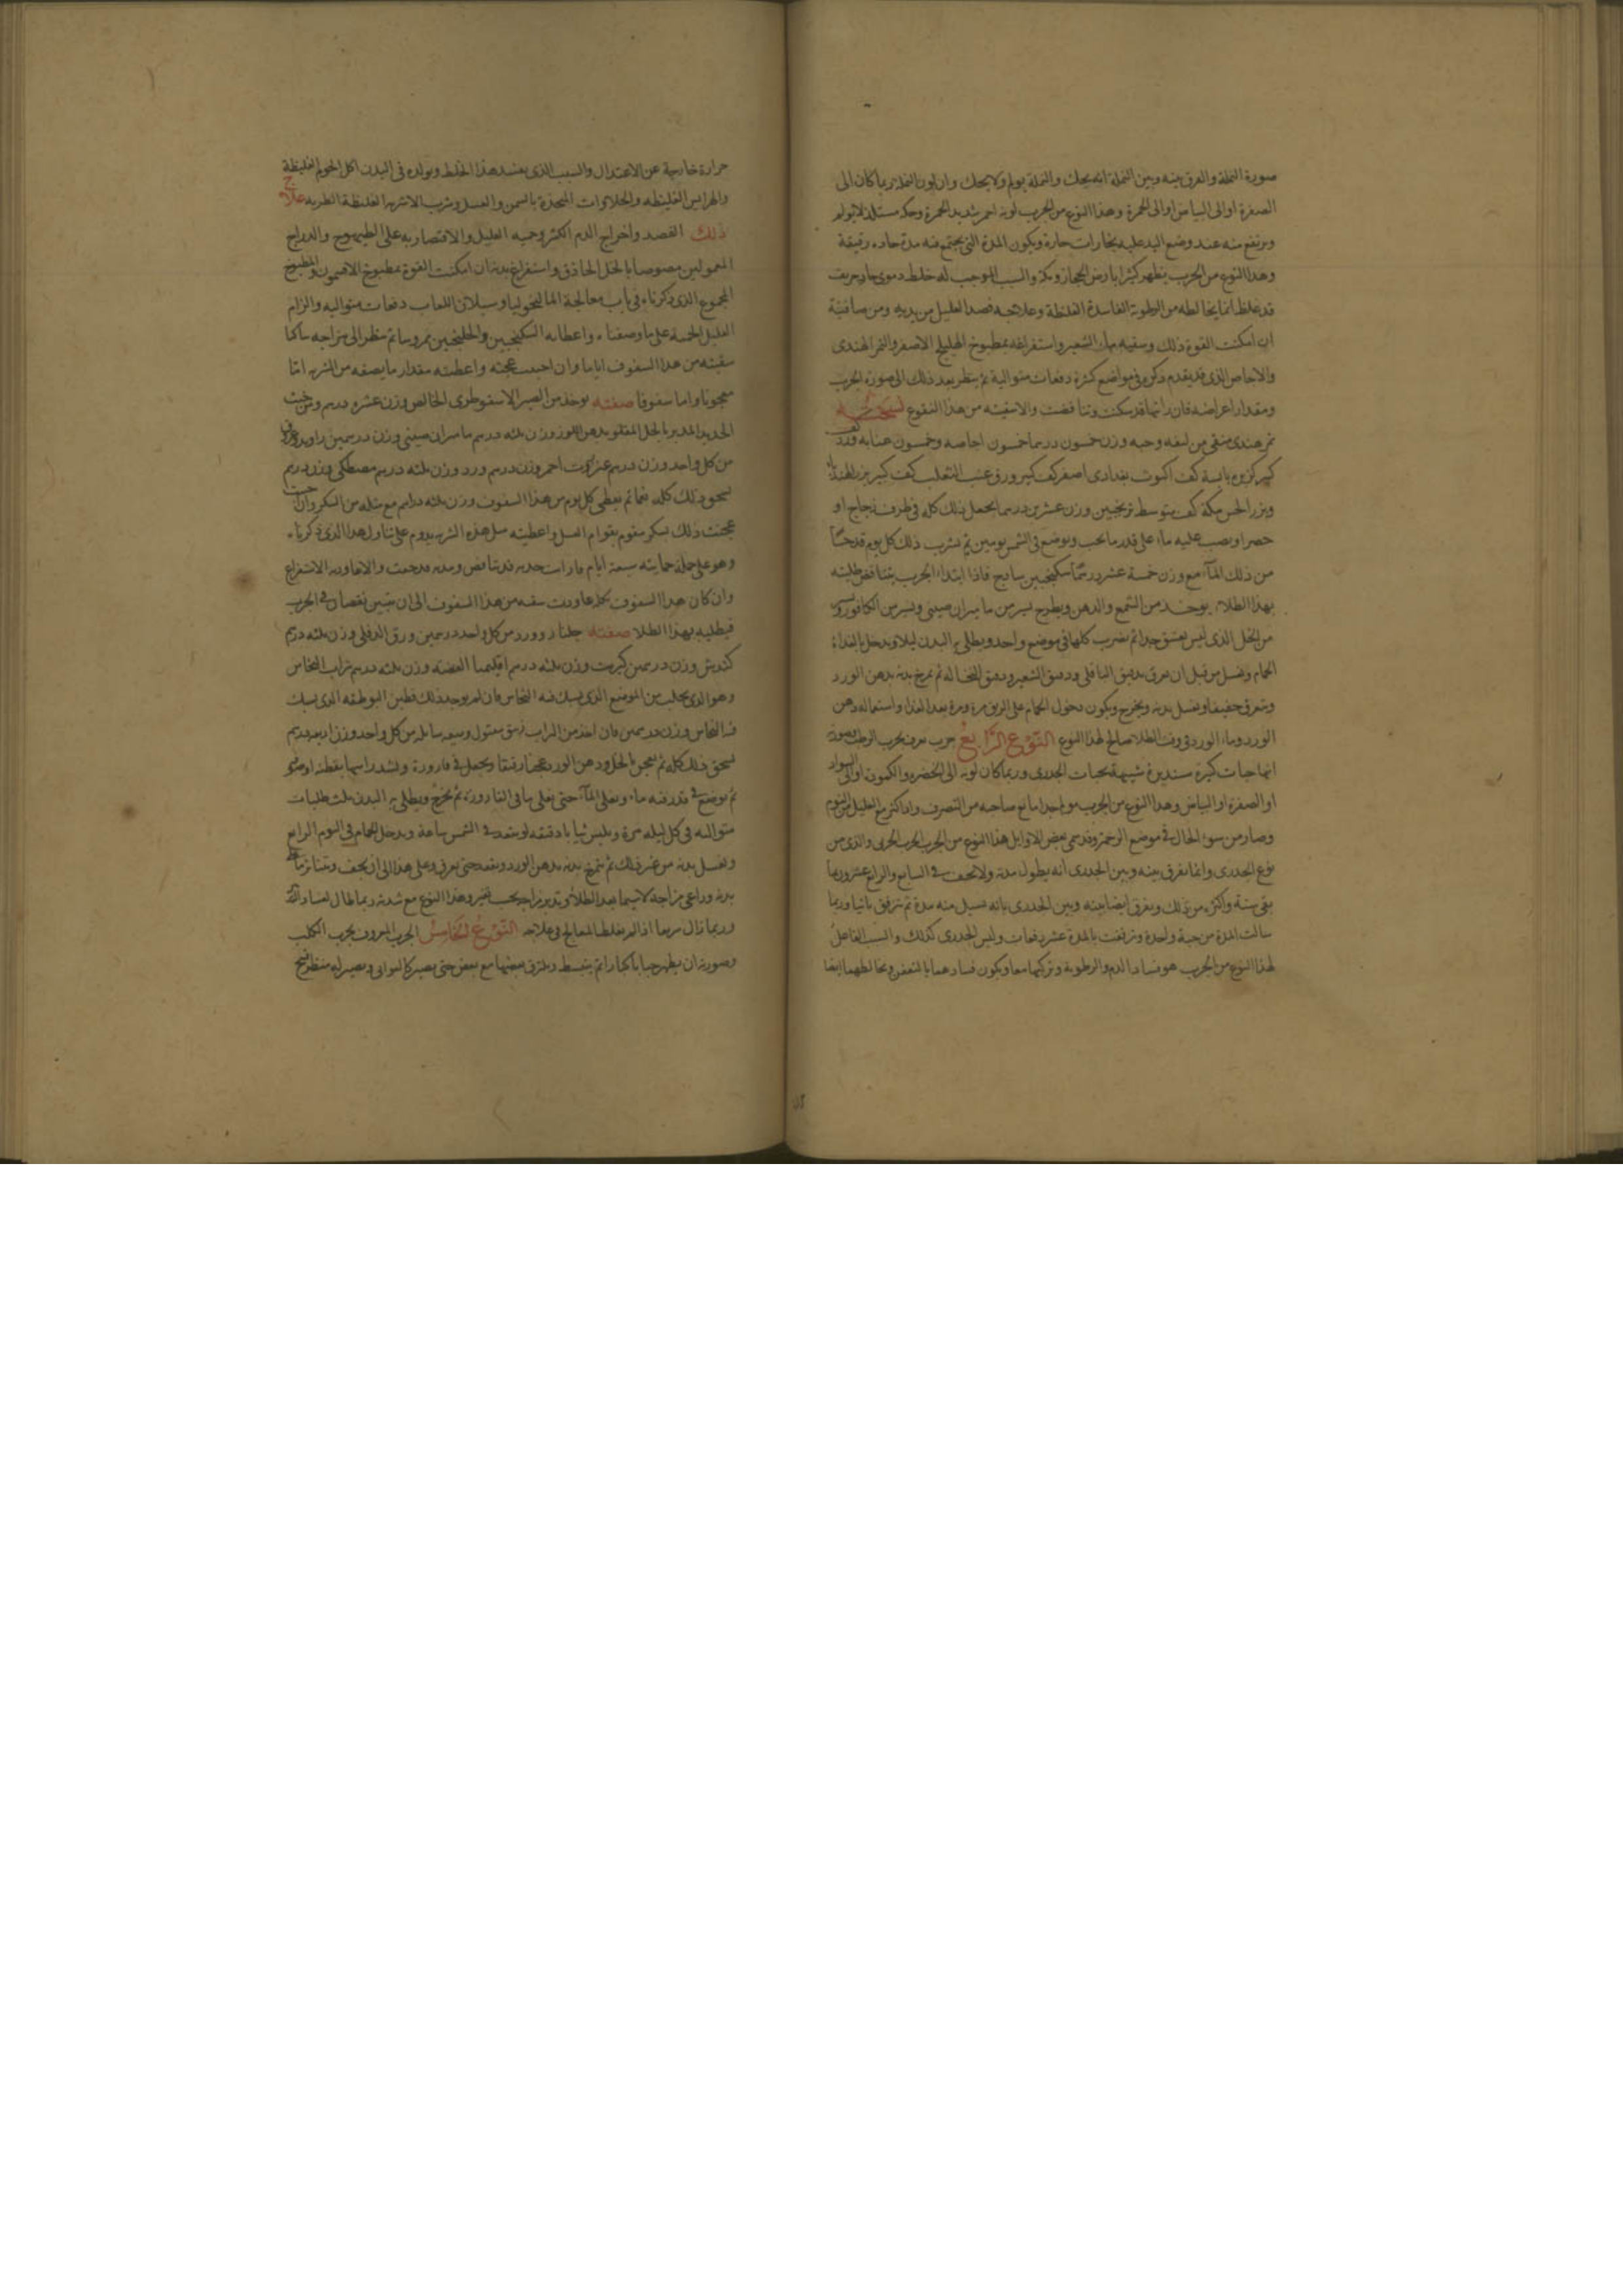 صورة النملة والفرق بينه وبين النملة انه يحك والنملة يولم ولا يحك وان لون النملة ربما كان الى
الصفرة او الى البياض او الى الحمرة وهذا النوع من الجرب لونه احمر شديد الحمرة وحكه مستلذ لا يولم
ويرتفع منه عند وضع اليد عليه بخارات حارة ويكون المدة التي يجتمع فيه مدة حاده رقيقة
وهذا النوع من الجرب يظهر كثيرا بارض الحجاز ومكة والسبب الموجب له خلط دموي حار حريف
قد غلظ انما يخالطه من الرطوبة الفاسدة الغلظة وعلاجه فصد العليل من يديه ومن صافنية
ان امكنت القوة ذلك وسقيه ماء الشعير واستفراغه بمطبوخ الهليلج الاصفر والتمر الهندى
والاجاص الذى قد يقدم ذكره في مواضع كثرة دفعات متوالية ثم ينظر بعد ذلك الى صورة الجرب
ومقدار اعراضه فان راتها قد سكنت وتناقصت والا سقيته من هذا النقوع
تمر هندى منقى من ليفه وحبه وزن خمسون درهما خمسون اجاصة وخمسون عنابه
كزبرة يابسة كف اكشوث بغدادى اصفر كف كبير ورق عنب الثعلب كف كبير بزر الهندبا
وبزر الخس مكة كف متوسط ترنجبين وزن عشرين درهما يجعل ذلك كله في ظرف زجاج او
ويصب عليه ماء على قدر ما يحب ويوضع في الشمس يومين ثم يشرب ذلك كل يوم قدحا
من ذلك الماء مع وزن خمسة عشر درهما سكنجبين ساذج فاذا ابتداء الجرب يتناقص طليته
بهذا الطلاء يوخذ من الشمع والدهن ويطرح يسير من ماميران صينى ويسير من الكافور
من الخل الذى ليس بعتيق جدا ثم يضرب كلها في موضع واحد ويطلى به البدن ليلا ويدخل بالغداة
الحمام ويغسل من قبل ان يعرق بدقيق الباقلى ودقيق الشعير ودقيق النخالة ثم يمرخ بدنه بدهن الورد
ويعرق خفيفا ويغسل بدنه ويخرج ويكون دخول الحمام على الريق مرة ومرة بعد الغذا واستعماله دهن
الورد وماء الورد في وقت الطلا صالح لهذا النوع النوع الرابع جرب يعرف بجرب الرطب وصورته
انها حبات كبيرة مستديرة شبيهة بحبات الجدرى وربما كان لونه الى الخضره والكمودة او الى السواد
او الصفرة او البياض وهذا النوع من الجرب مولم جدا مانع صاحبه من التصرف واذا كثر منع العليل من النوم
وصار من سوء الحال في موضع الرحمة وقد سمى بعض الاوايل هذا النوع من الجرب الجرب الجدرى والذى من
نوع الجدرى وانما يفرق بينه وبين الجدرى انه يطول مدته ولا يجف في السابع والرابع عشر وربما
بقى سنة واكثر من ذلك ويفرق ايضا بينه وبين الجدرى بانه تسيل منه مدة ثم تترفق ثانيا وربما
سالت المدة من حبة واحدة وترفقت بالمدة عشر دفعات وليس الجدرى كذلك والسبب الفاعل
لهذا النوع من الجرب هو فساد الدم والرطوبة وتركبهما معا ويكون فسادهما بالتعفن وتخالطهما ايضا
حرارة خارجة عن الاعتدال والسبب الذى يفسد هذا الخلط وتولده في البدن اكل اللحوم الغليظة
والهرايس الغليظة والحلاوات المتخذة بالسمن والعسل وشرب الاشربه الغليظة الطريه علاج
ذلك الفصد واخراج الدم الكثير وحميه العليل والاقتصار به على الطيهوج والدراج
المعمولين مصوصا بالخل الحاذق واستفراغ بدنه ان امكنت القوة بمطبوخ الافتيمون والمطبوخ
المجموع الذى ذكرناه في باب معالجة الماليخوليا وسيلان اللعاب دفعات متواليه والزام
العليل الحمية على ما وصفناه واعطايه السكنجبين والجلنجبين مروسا ثم تنظر الى مزاجه
سقيته من هذا السفوف اياما وان احببت عجنته واعطيته مقدار ما يصفه من الشربه اما
معجونا واما سفوفا صفته يوخذ من الصبر الاسقوطرى الخالص وزن عشره درهم ومن خبث
الحديد المدبر بالخل المقلو بدهن اللوز وزن ثلثه درهم ماميران صينى وزن درهمين راوند
من كل واحد وزن درهم عنزروت احمر وزن درهم ورد وزن ثلثه درهم مصطكى وزن درهم
يسحق ذلك كله ناعما ثم يعطى كل يوم من هذا السفوف وزن ثلثه دراهم مع مثله من السكر وان احببت
عجنت ذلك بسكر مقوم بقوام العسل واعطيته مثل هذه الشربه يدوم على تناول هذا الذى ذكرناه
وهو على جملة حمايته سبعة ايام فان رايت حدته قد تناقص ومدته قد جفت والا عاودته الاستفراغ
وان كان هذا السفوف بحله عاودت سقيه من هذا السفوف الى ان يتبين نقصان في الجرب
فيطليه بهذا الطلا صفته جلنار وورد من كل واحد درهمين ورق الدفلى وزن ثلثه درهم
كندش وزن درهمين كبريت وزن ثلثه درهم اقليميا الفضة وزن ثلثه درهم تراب النحاس
وهو الذى يجلب من الموضع الذى يسبك فيه النحاس فان لم يوجد ذلك فطين البوطقه الذى يسبك
فيه النحاس وزن درهمين فان اخذ من التراب زيبق مقتول وميعه سايله من كل واحد وزن اربعه درهم
يسحق ذلك كله ثم يعجن بالخل ودهن الورد عجنا رقيقا ويجعل في قارورة ويشد راسها بقطنه
ثم يوضع في قدر فيه ماء ويغلى الماء حتى يغلى ما في القارورة ثم يخرج ويطلى به البدن ثلث طليات
متواليه في كل ليله مرة ويلبس ثيابا دقيقه او يقعد في الشمس ساعة ويدخل الحمام في اليوم الرابع
ويغسل بدنه من غير ذلك ثم يتمرخ بدنه بدهن الورد ويقعد حتى يعرق وعلى هذا الى ان يجف ويتناثر
بدنه ويراعى مزاجه لا سيما بعد الطلا وتدبير مزاجه بحسب التغير وهذا النوع مع شدته ربما طال لفساد
وربما زال سريعا اذا لم يغلط المعالج في علاجه النوع الخامس الجرب المعروف بجرب الكلب
وصورته ان يظهر حبا باكبارا ثم ينبسط ويلتزق بعضها مع بعض حتى يصير كالقوابى ويصير له منظر قبيح